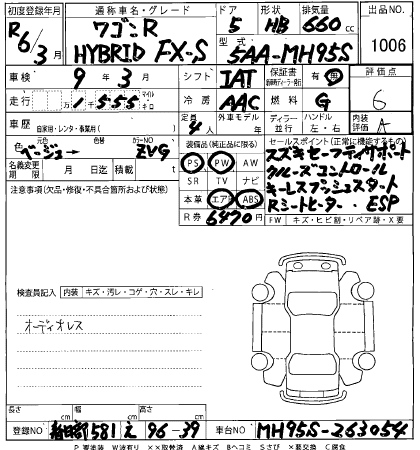 初度登録年月 通称車名・グレード ドア 形状 排気量 出品NO
R6/3月 ワゴンR HYBRID FX-S 5 HB 660cc 1006
型式 5AA-MH95S
車検 9年3月 シフト IAT 保証書 有 無 評価点
走行 1555 マイル キロ 冷房 AAC 燃料 G 6
車歴 自家用・レンタ・事業用( ) 定員 4人 外車モデル 年 ディーラー 並行 ハンドル 左・右 内装評価 A
色 元色 ベージュ→ カラーNO ZVG 装備品(純正品に限る) セールスポイント(正常に機能するもの)
名義変更期限 月 日迄 積載 t
PS PW AW
SR TV ナビ
本革 エアB ABS
R券 6470円
スズキセーフティサポート
クルーズコントロール
キーレスプッシュスタート
Rシートヒーター ESP
FW キズ・ヒビ割・リペア跡・X要
注意事項(欠品・修復・不具合箇所および状態)
検査員記入 内装 キズ・汚レ・コゲ・穴・スレ・キレ
オーディオレス
長さ cm 幅 cm 高さ cm
登録NO 581 え 96-39 車台NO MH95S-263054
P 要塗装 W波有り ××取替済 A線キズ Bヘコミ Sさび ×要交換 C腐食